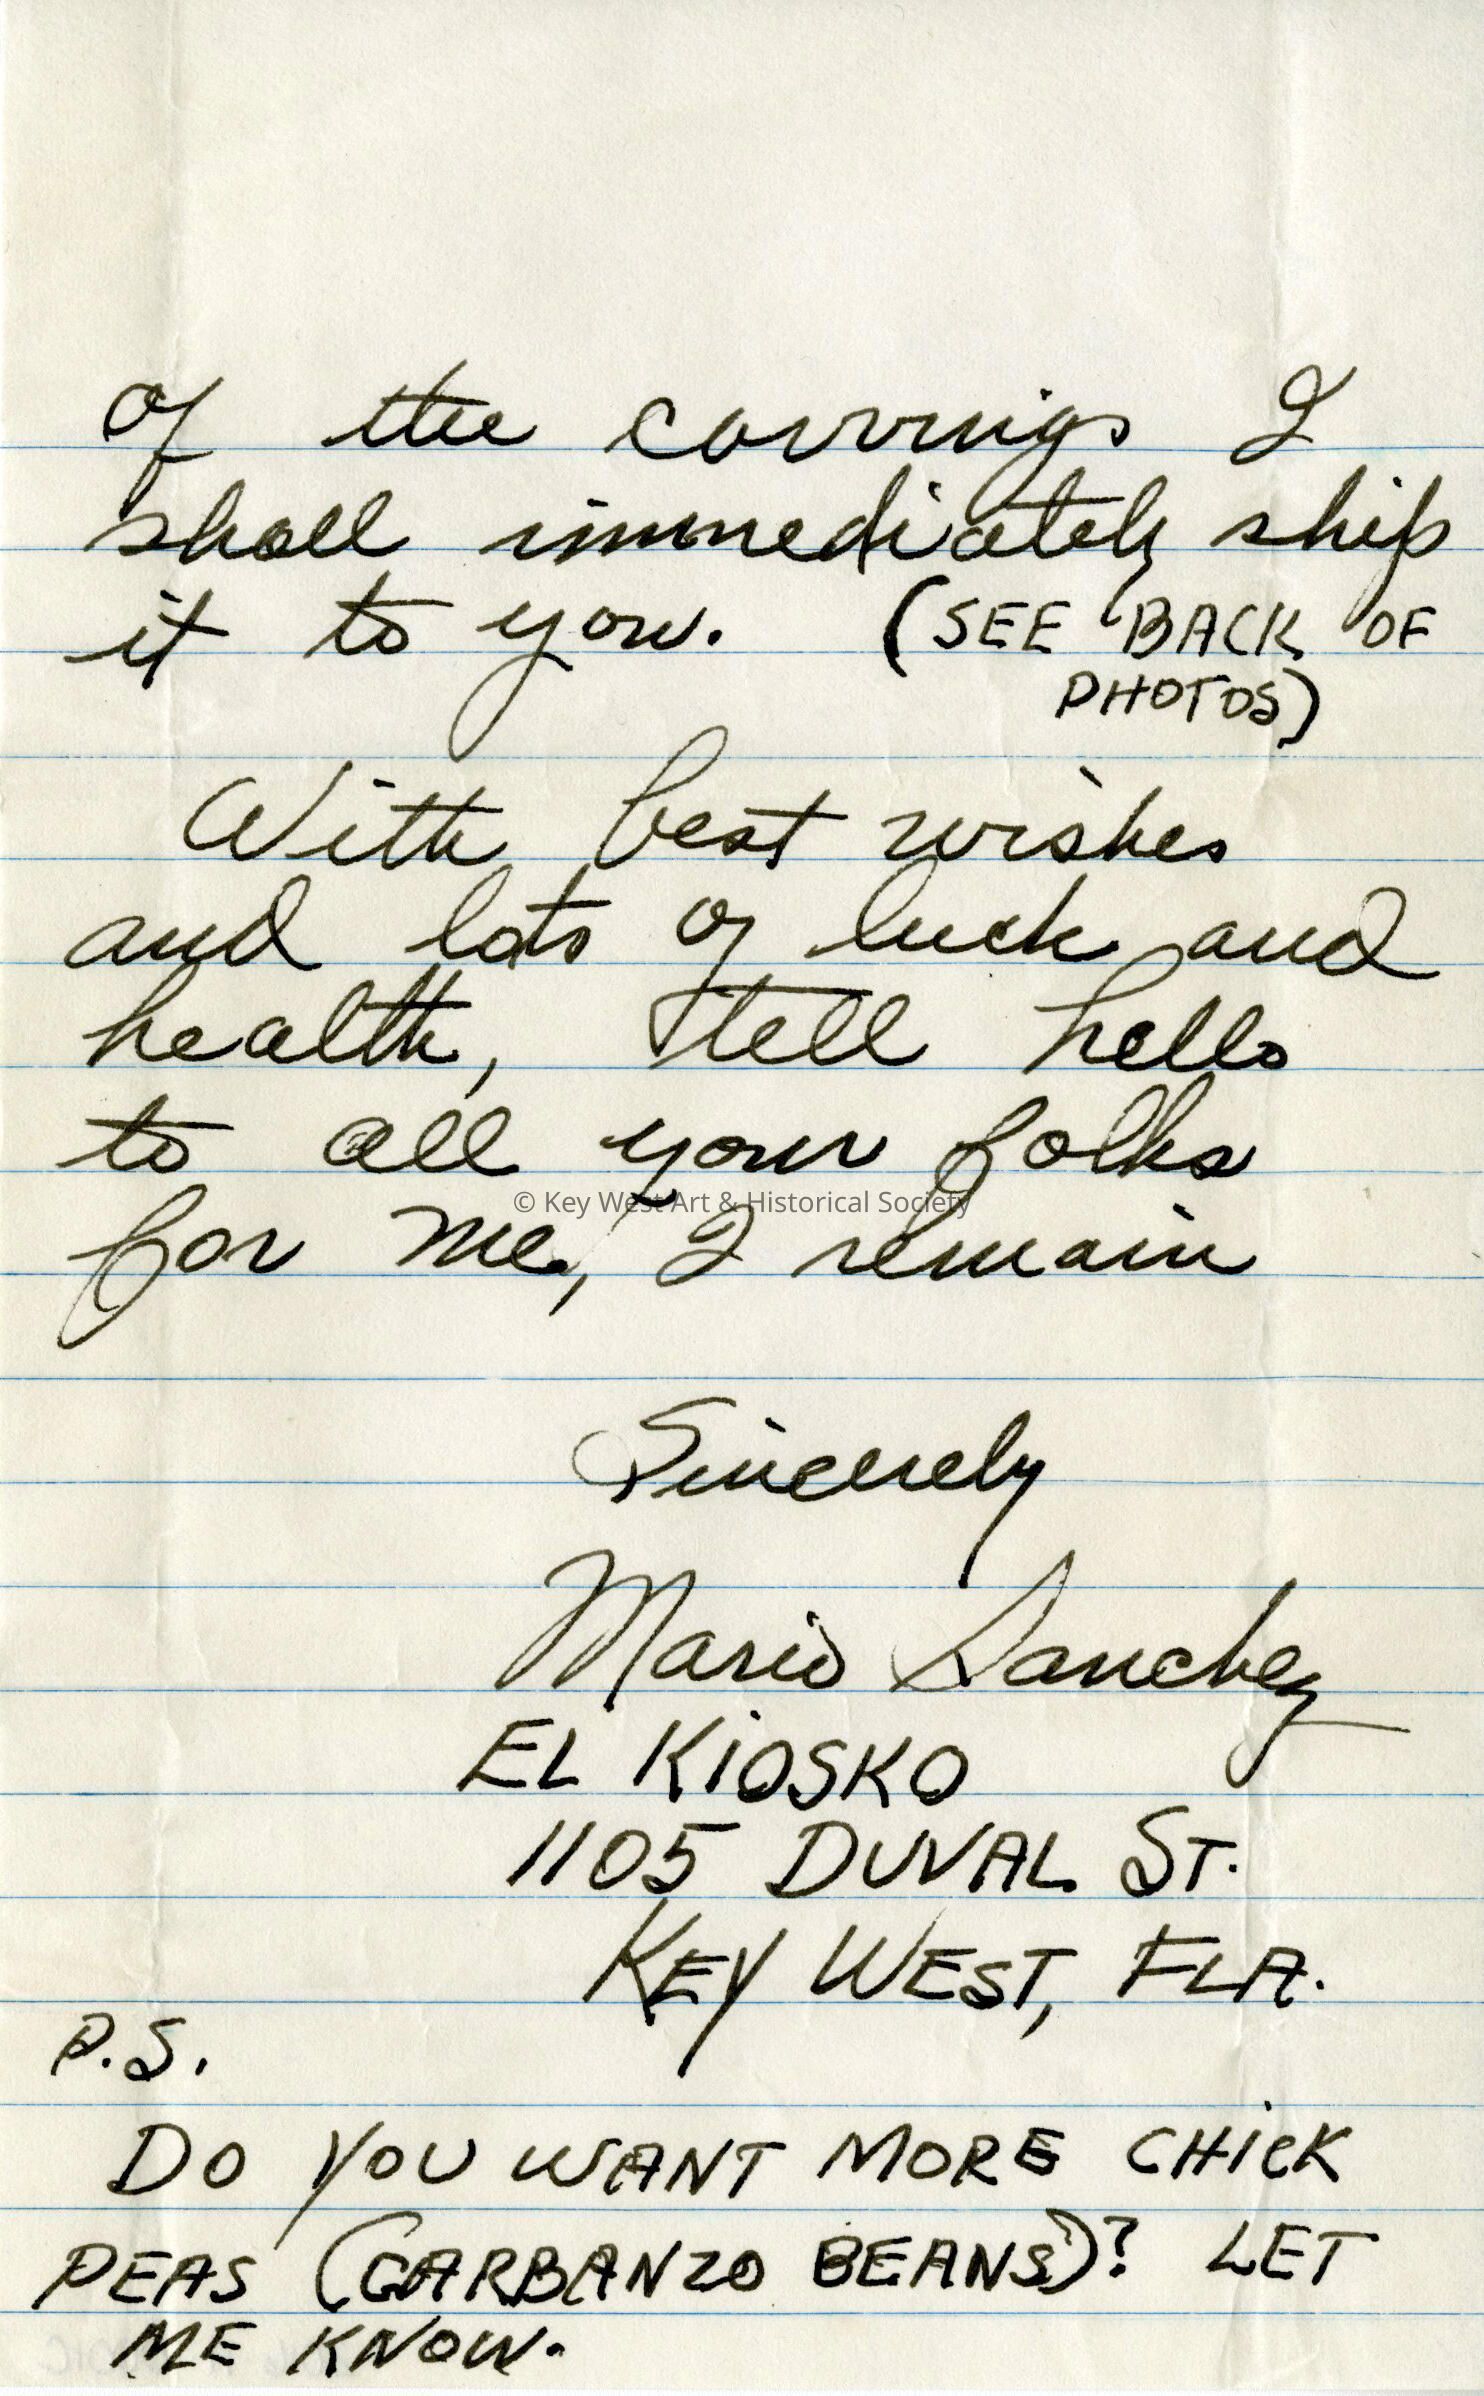 of the carvings I
shall immediately ship
it to you. (SEE BACK OF
PHOTOS)
With best wishes
and lots of luck and
health, tell hello
to all your folks
© Key West Art & Historical Society
for me, I remain
Sincerely
Mario Sanchez
EL KIOSKO
1105 DUVAL ST.
KEY WEST, FLA.
P.S.
DO YOU WANT MORE CHICK
PEAS (GARBANZO BEANS)? LET
ME KNOW.